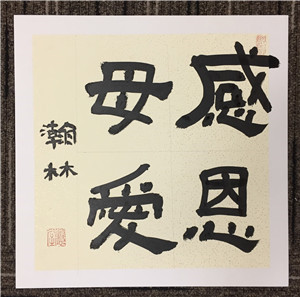 感恩
母愛
瀚林